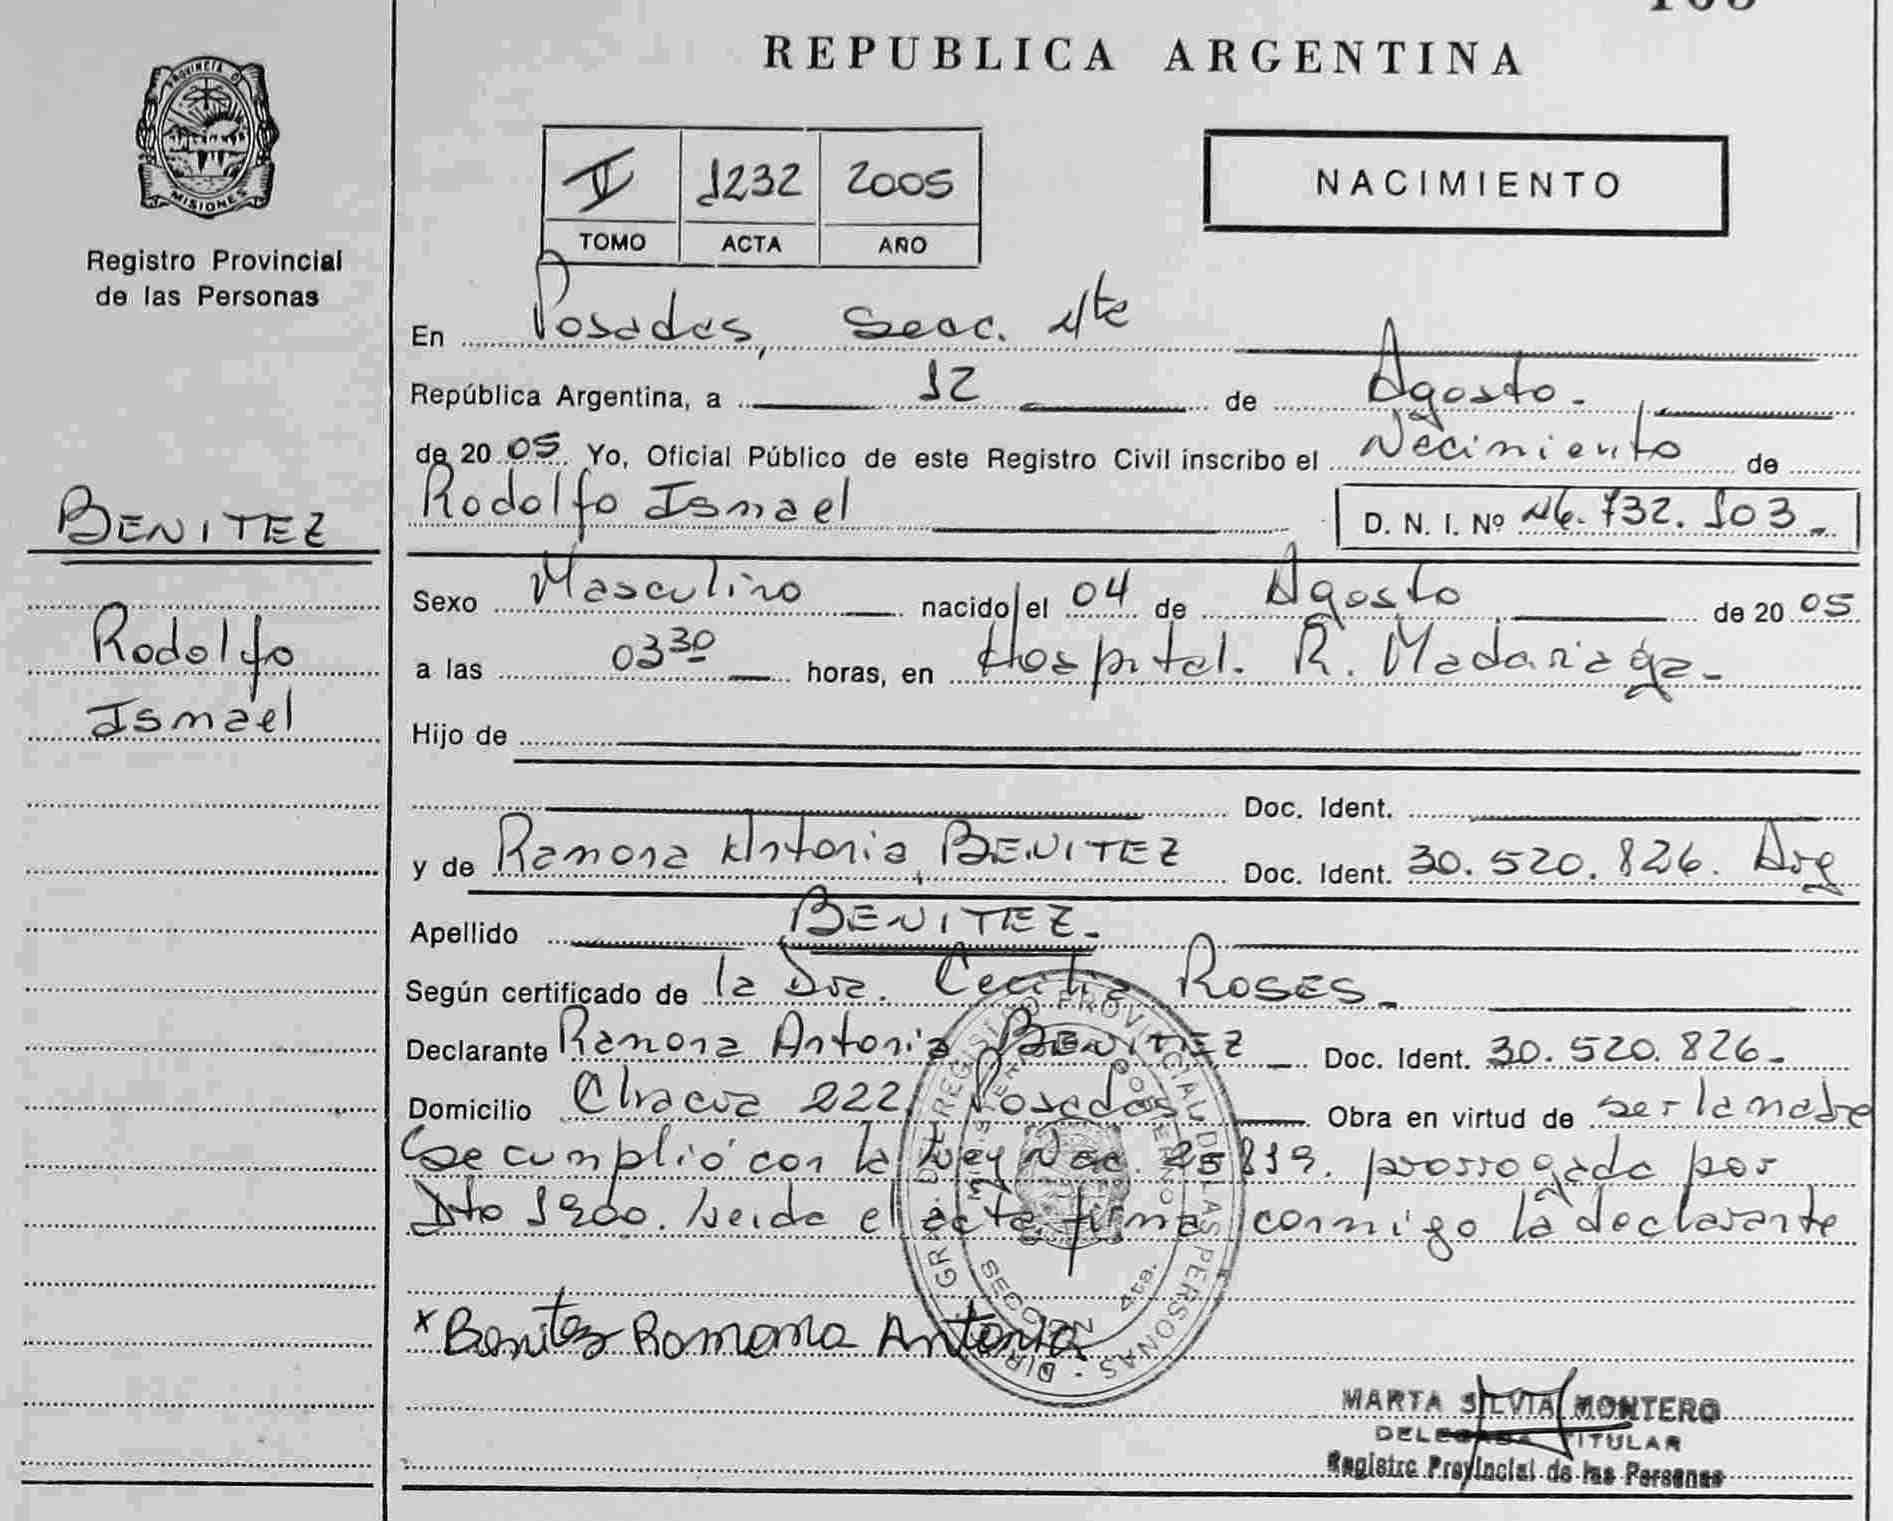 REPUBLICA ARGENTINA
PROVINCIA DE
MISIONES
Registro Provincial
de las Personas
II 1232 2005
TOMO ACTA AÑO
NACIMIENTO
En Posadas, Secc. 4ta
República Argentina, a 12 de Agosto.
de 2005 Yo, Oficial Público de este Registro Civil inscribo el Nacimiento de
Rodolfo Ismael D. N. I. Nº 46.732.103.-
BENITEZ
Rodolfo
Ismael
Sexo Masculino nacido el 04 de Agosto de 2005
a las 03 30 horas, en Hospital. R. Madariaga.-
Hijo de
Doc. Ident.
y de Ramona Antonia BENITEZ Doc. Ident. 30.520.826. Arg
Apellido BENITEZ.-
Según certificado de la Dra. Cecilia ROSES.-
Declarante Ramona Antonia BENITEZ - Doc. Ident. 30.520.826.-
Domicilio Chacra 222, Posadas Obra en virtud de ser la madre
Se cumplió con la Ley Nac. 25819. prorrogada por
Dto 1900. Leida el acta firma conmigo la declarante
x Benitez Romona Antonia
DIR. GRAL. DE REGISTRO PROVINCIAL DE LAS PERSONAS
SECCION 4ta.
MARTA SILVIA MONTERO
DELEGADA TITULAR
Registro Provincial de las Personas